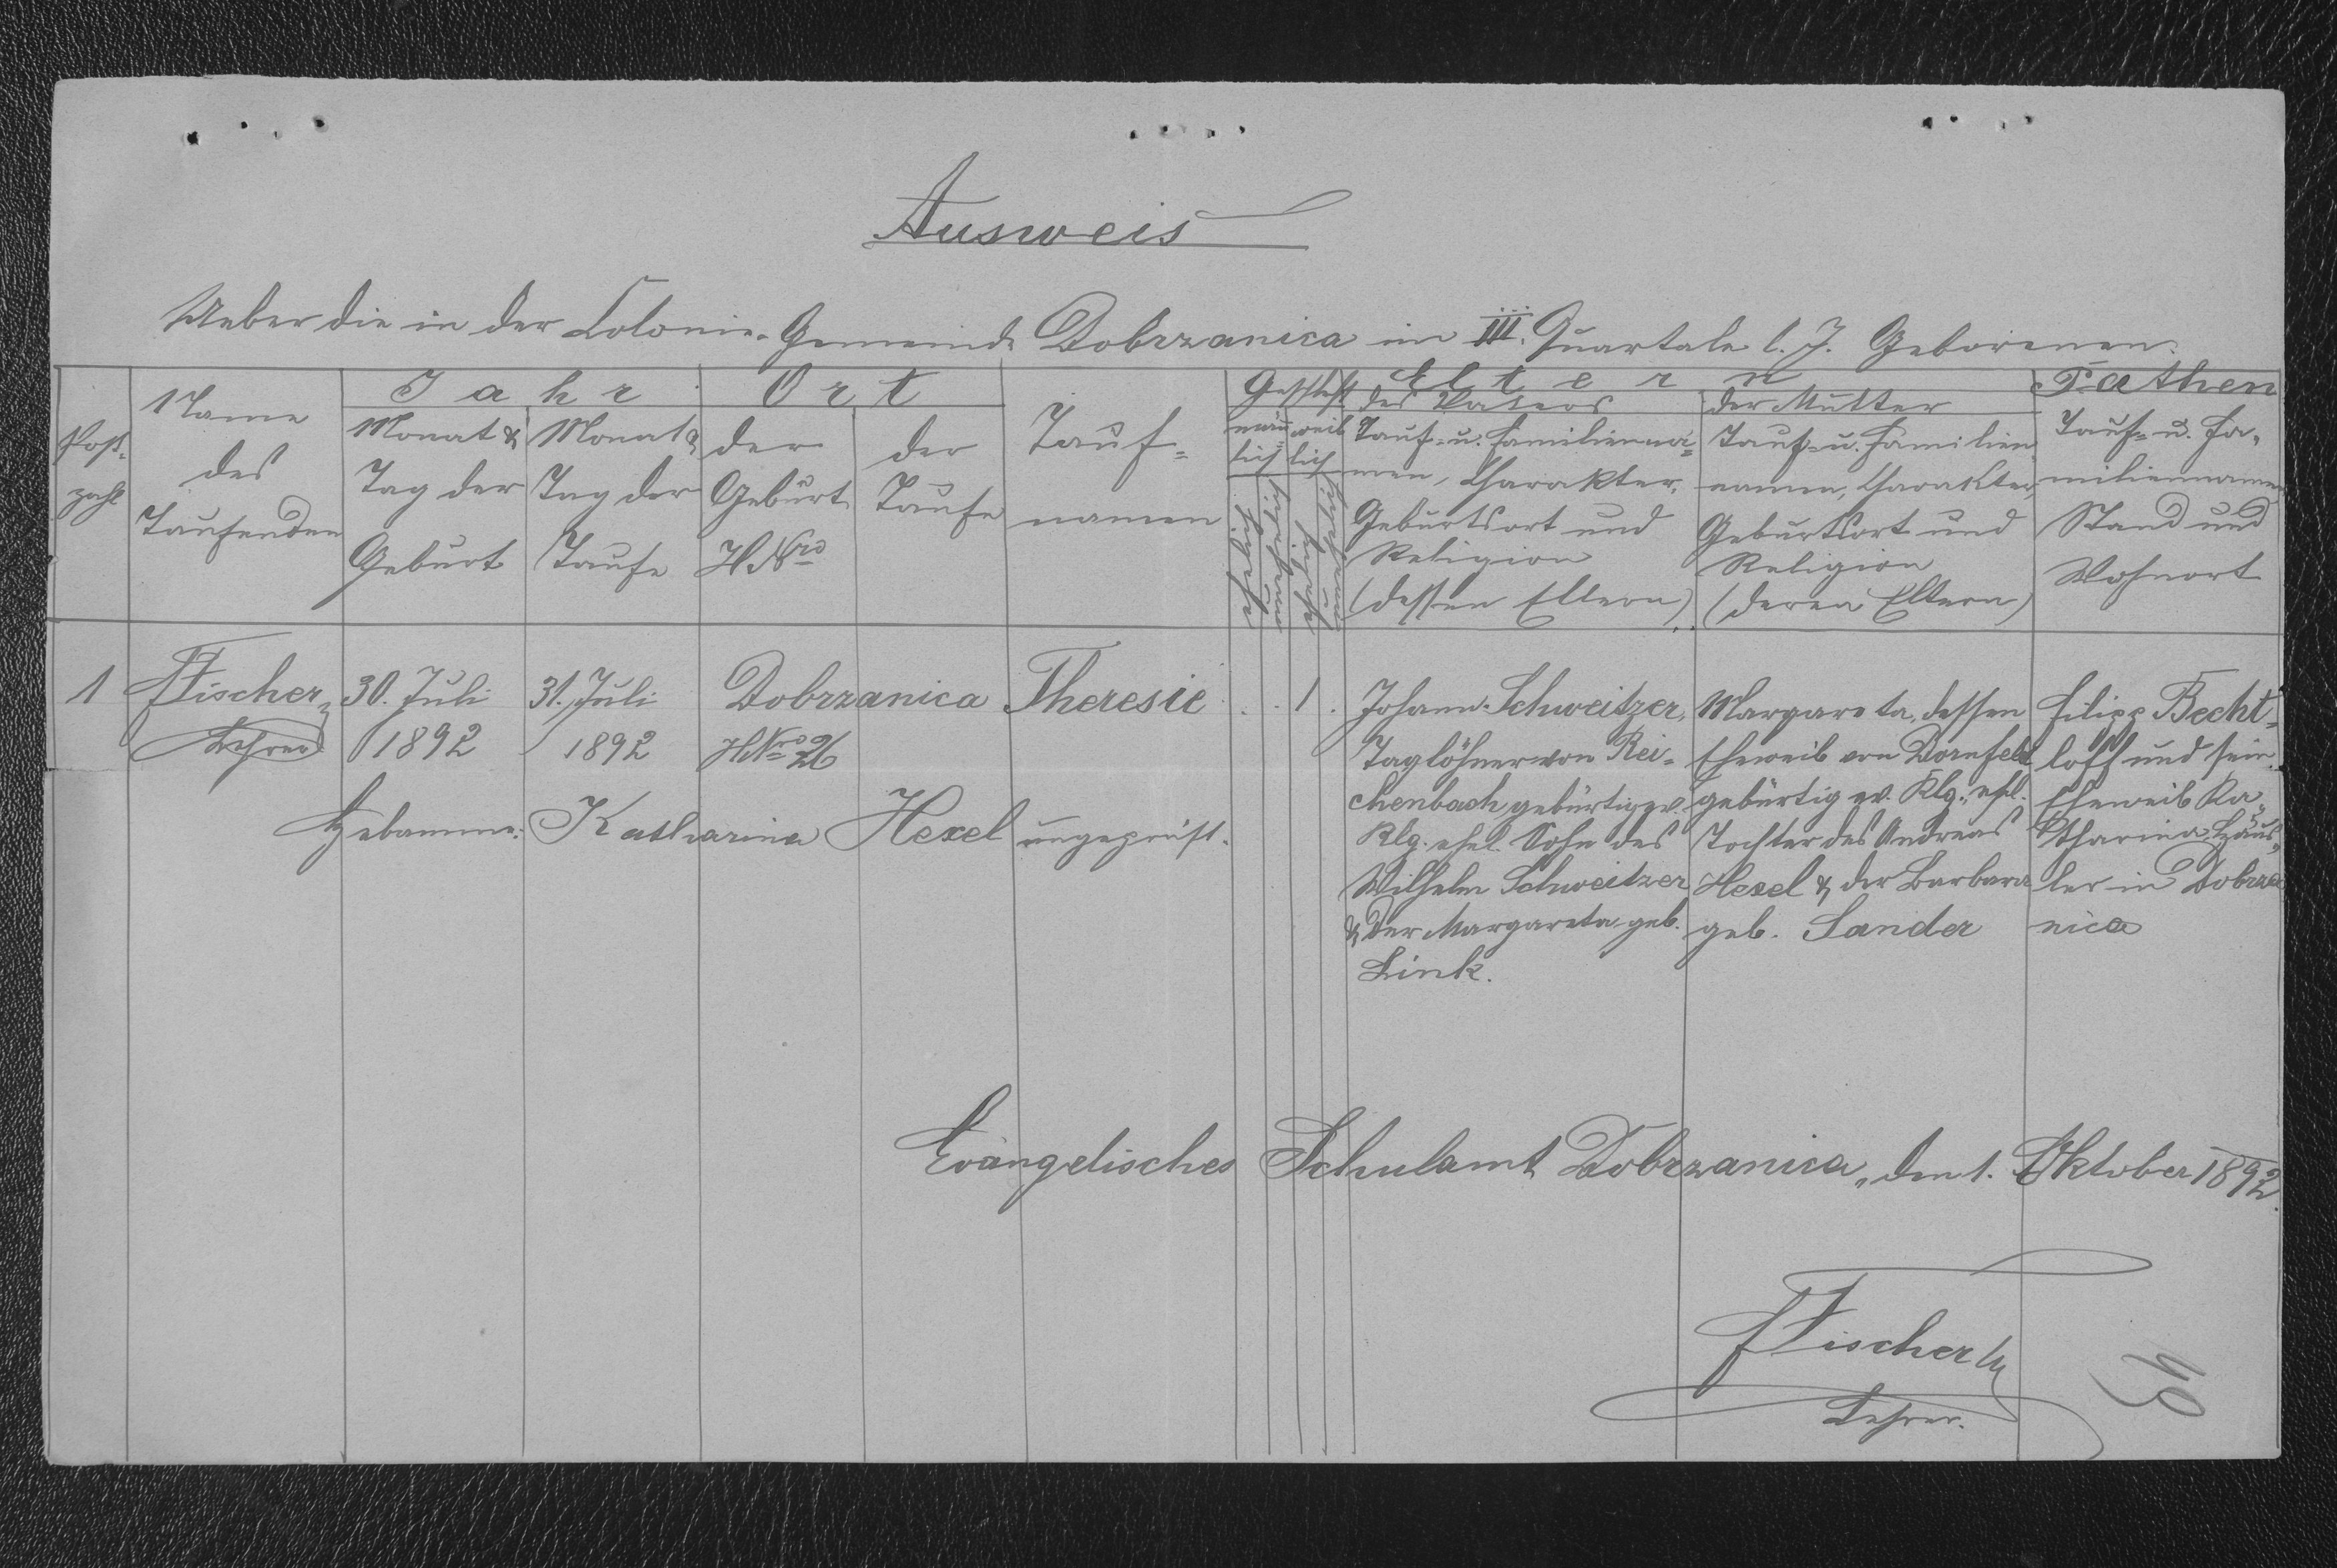 Ausweis
Ueber die in der Colonie-Gemeinde Dobrzanica im III. Quartale l. J. Geborenen.
Post-
zahl
Name
des
Taufenden
Jahr
Monat &
Tag der
Geburt
Monat &
Tag der
Taufe
Ort
der
Geburt
HNro
der
Taufe
Tauf-
namen
Geschlecht
männ
lich
weib
lich
ehelich
unehelich
ehelich
unehelich
Eltern
des Vaters
Tauf- u. Familienna-
men, Charakter,
Geburtsort und
Religion
(dessen Eltern)
der Mutter
Tauf- u. Familien
namen, Charakter,
Geburtsort und
Religion
(deren Eltern)
Pathen
Tauf- u. Fa-
miliennamen
Stand und
Wohnort
1
Fischer
Lehrer
30. Juli
1892
31. Juli
1892
Dobrzanica
HNro 26
Theresie
. . 1 .
Johann Schweitzer,
Taglöhner von Rei-
chenbach gebürtig ev.
Rlg. ehel. Sohn des
Wilhelm Schweitzer
& der Margareta geb.
Link.
Margareta, dessen
Eheweib von Dornfeld
gebürtig ev. Rlg., ehel.
Tochter des Andreas
Hexel & der Barbara
geb. Sander
Filipp Becht-
loff und sein
Eheweib Ka-
tharina, Häus-
ler in Dobrza
nica
Hebamme: Katharina Hexel ungeprüft.
Evangelisches Schulamt Dobrzanica, den 1. Oktober 1892.
Fischer
Lehrer.